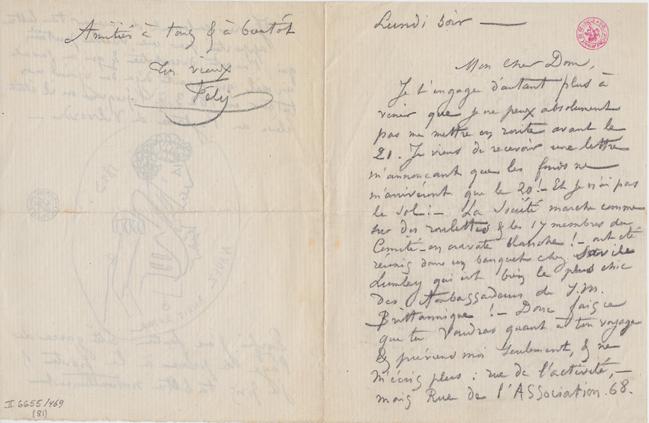 Lundi soir —
Mon cher Dom,
Je t'engage d'autant plus à
venir que je ne peux absolument
pas me mettre en route avant le
21. Je viens de recevoir une lettre
m'annonçant que les fonds ne
m'arriveront que le 20! – Et je n'ai pas
le sol! – La Société marche comme
sur des roulettes & les 17 membres du
Comité – en cravate blanche! – ont été
réunis dans un banquet chez
Lumley qui est bien le plus chic
des Ambassadeurs de S.M.
Brittannique! – Donc fais ce
que tu voudras quant à ton voyage
& préviens moi seulement, & ne
m'écris plus : rue de l'activité, –
mais Rue de l'Association. 68.
Amitiés à tous & à bientôt
Ton vieux
Fély
II 6655/469
(81)